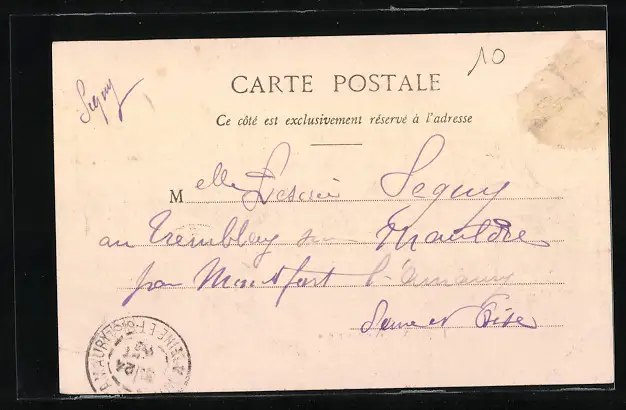 10
Seguy
CARTE POSTALE
Ce côté est exclusivement réservé à l'adresse
Melle Seguy
au Tremblay sur Mauldre
par Montfort l'Amaury
Seine et Oise